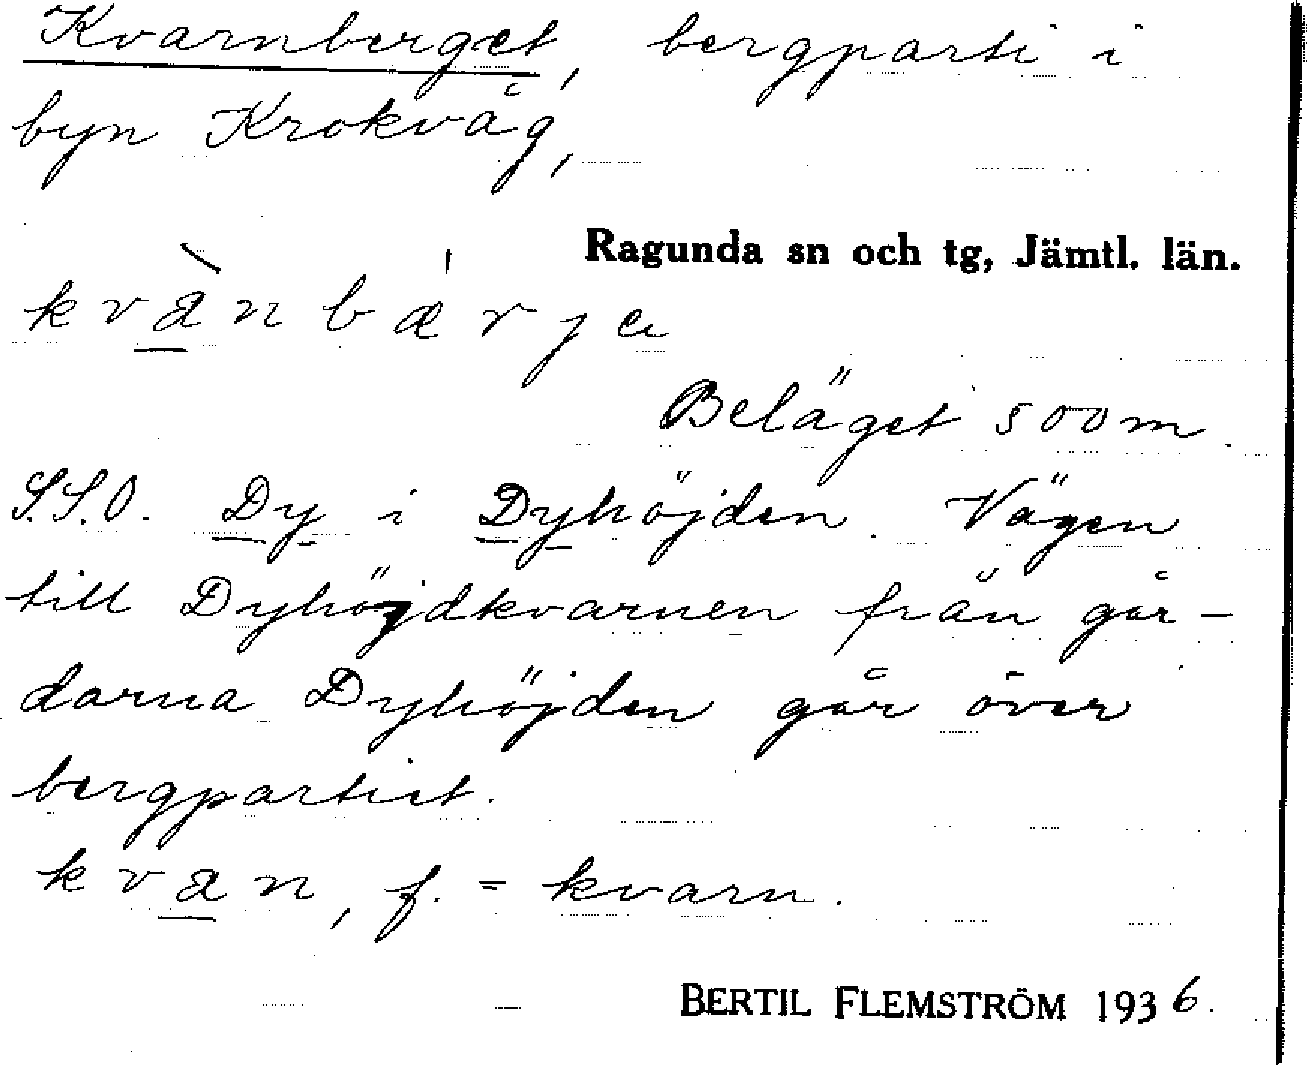 Kvarnberget, bergparti i
byn Krokvåg,
Ragunda sn och tg, Jämtl. län.
kvànbǽrja
Beläget 500m.
S.S.O. Dy i Dyhöjden. Vägen
till Dyhöjdkvarnen från går-
darna Dyhöjden går över
bergpartiet.
kvan, f. = kvarn.
BERTIL FLEMSTRÖM 1936.